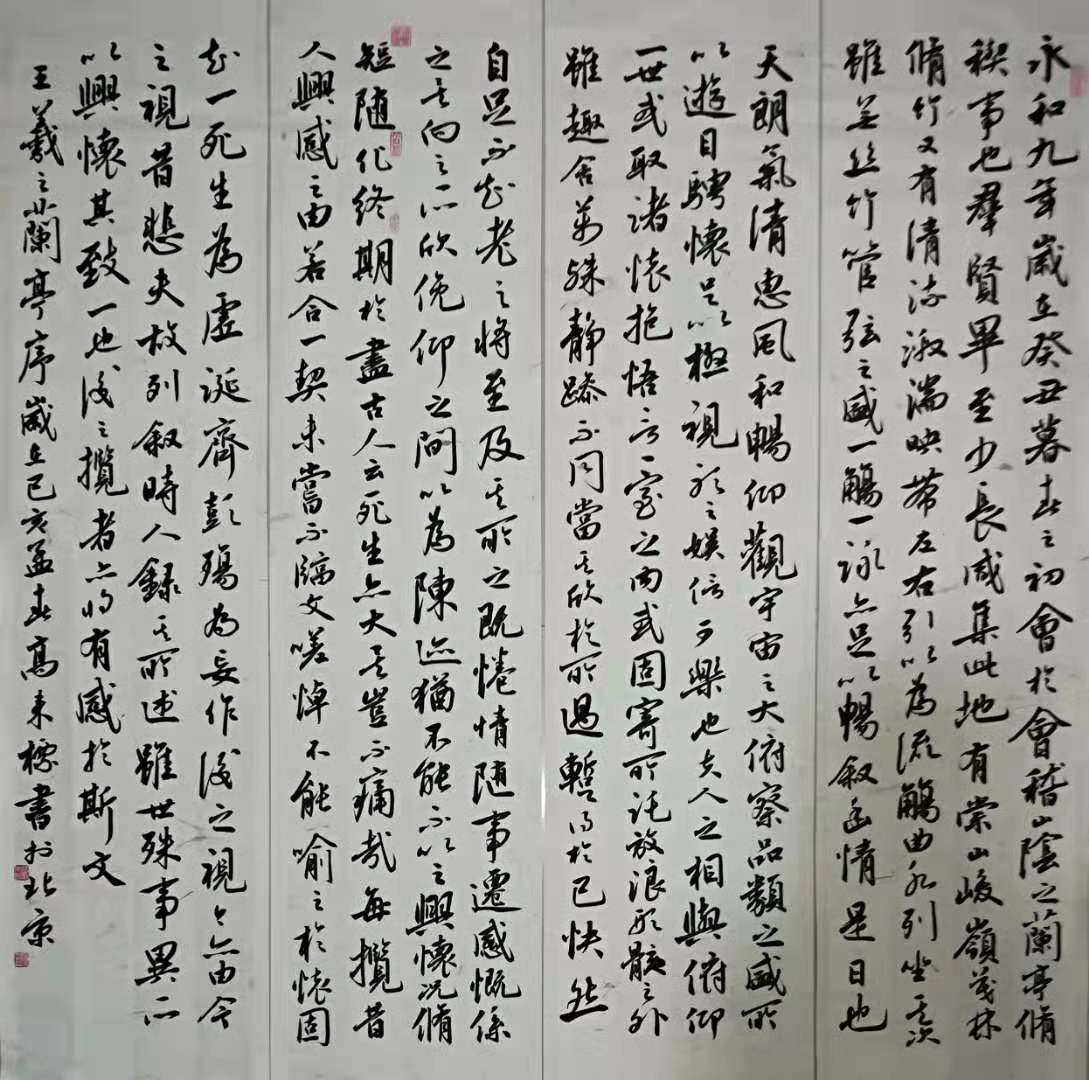 永和九年歲在癸丑暮春之初會於會稽山陰之蘭亭脩
稧事也羣賢畢至少長咸集此地有崇山峻嶺茂林
脩竹又有清流激湍映帶左右引以為流觴曲水列坐其次
雖無絲竹管弦之盛一觴一詠亦足以暢敘幽情是日也
天朗氣清惠風和暢仰觀宇宙之大俯察品類之盛所
以遊目騁懷足以極視聽之娛信可樂也夫人之相與俯仰
一世或取諸懷抱悟言一室之內或因寄所託放浪形骸之外
雖趣舍萬殊靜躁不同當其欣於所遇暫得於己快然
自足不知老之將至及其所之既惓情隨事遷感慨係
之矣向之所欣俛仰之間以為陳迹猶不能不以之興懷況脩
短隨化終期於盡古人云死生亦大矣豈不痛哉每攬昔
人興感之由若合一契未嘗不臨文嗟悼不能喻之於懷固
知一死生為虛誕齊彭殤為妄作後之視今亦由今
之視昔悲夫故列敘時人錄其所述雖世殊事異所
以興懷其致一也後之攬者亦將有感於斯文
王羲之蘭亭序歲在己亥孟春高來標書於北京